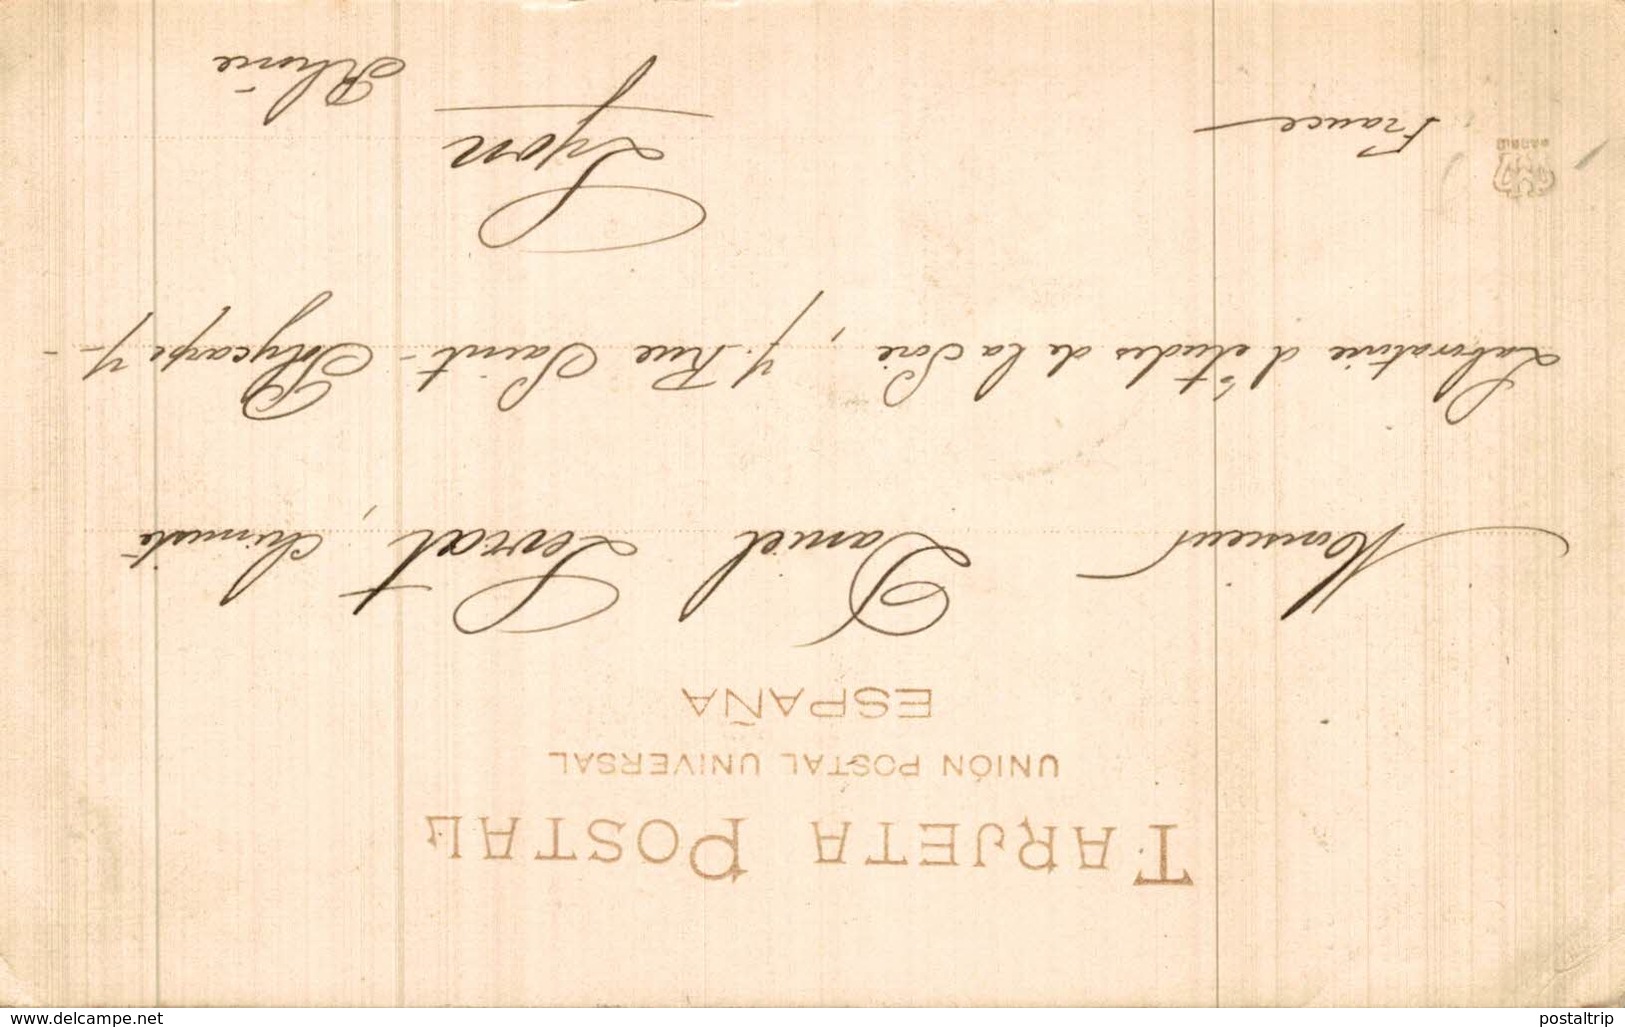 TARJETA POSTAL
UNIÓN POSTAL UNIVERSAL
ESPAÑA
Monsieur Daniel Levrat, Chimiste
Laboratoire d'études de la Soie, 7. Rue Saint-Polycarpe 7-
Lyon
France
Rhône
MADRID
www.delcampe.net
postaltrip